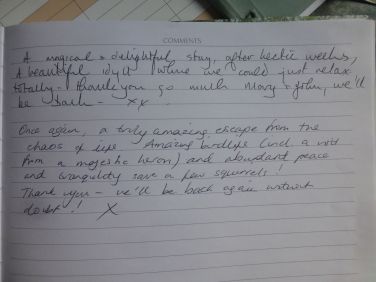 COMMENTS
A magical & delightful stay, after hectic weeks,
A beautiful idyll where we could just relax
totally - thank you so much Mary & John, we'll
be back - xx
Once again, a truly amazing escape from the
chaos of life. Amazing birdlife (incl a visit
from a majestic heron) and abundant peace
and tranquility save a few squirrels!
Thank you - we'll be back again without
doubt! X